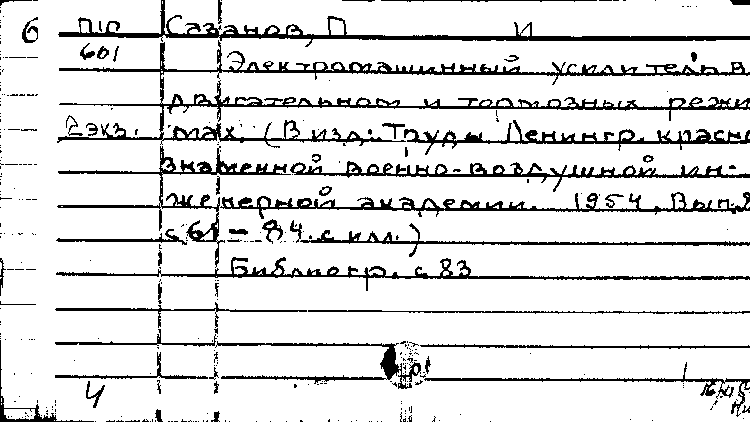 б П10 Сазанов, П И
601 Электромашинный усилитель в
двигательном и тормозных режи
2 экз. мах. (В изд.: Труды Ленингр. красно
знаменной военно-воздушной ин-
женерной академии. 1954, Вып.
с. 61 - 84. с илл.)
Библиогр. с 83
Ч